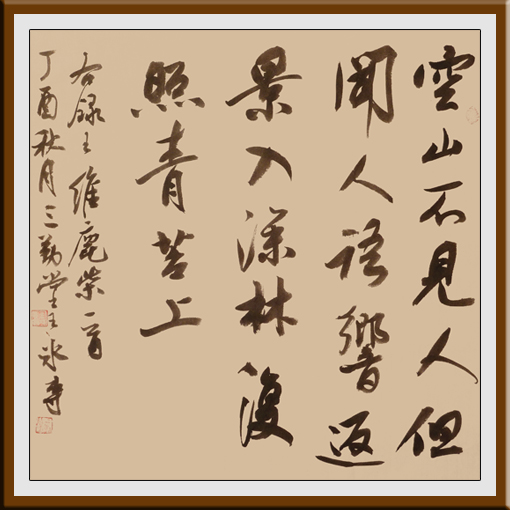 空山不見人但
聞人語響返
景入深林復
照青苔上
右錄王維鹿柴一首
丁酉秋月三勤堂王永